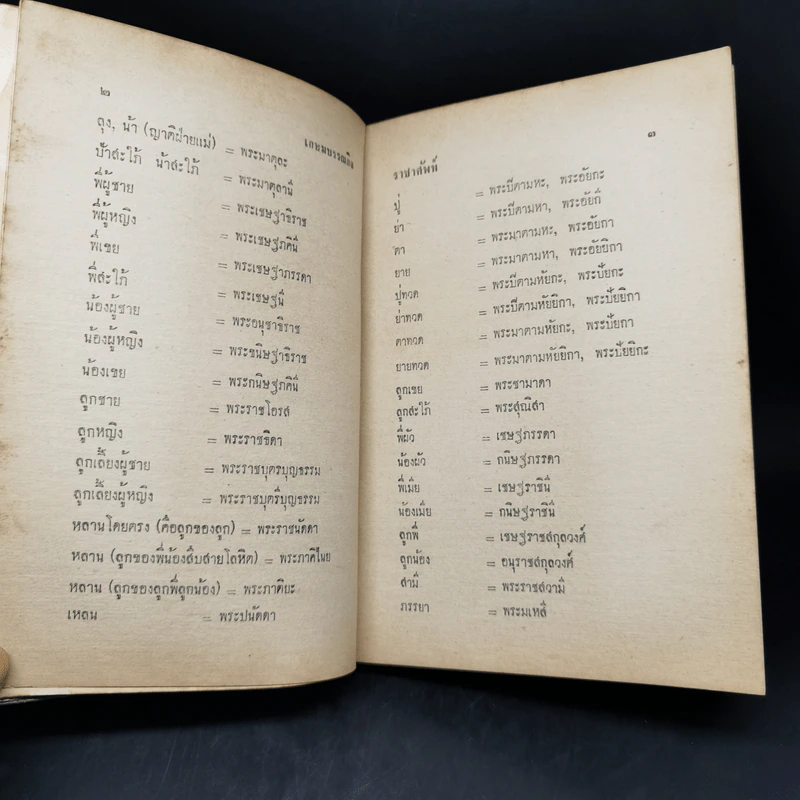 ๒
เกษมบรรณกิจ
ลุง, น้า (ญาติฝ่ายแม่) = พระมาตุละ
ป้าสะใภ้ น้าสะใภ้ = พระมาตุลานี
พี่ผู้ชาย = พระเชษฐาธิราช
พี่ผู้หญิง = พระเชษฐภคินี
พี่เขย = พระเชษฐาภรรดา
พี่สะใภ้ = พระเชษฐนี
น้องผู้ชาย = พระอนุชาธิราช
น้องผู้หญิง = พระขนิษฐาธิราช
น้องเขย = พระกนิษฐภคินี
ลูกชาย = พระราชโอรส
ลูกหญิง = พระราชธิดา
ลูกเลี้ยงผู้ชาย = พระราชบุตรบุญธรรม
ลูกเลี้ยงผู้หญิง = พระราชบุตรีบุญธรรม
หลานโดยตรง (คือลูกของลูก) = พระราชนัดดา
หลาน (ลูกของพี่น้องสืบสายโลหิต) = พระภาคิไนย
หลาน (ลูกของลูกพี่ลูกน้อง) = พระภาติยะ
เหลน = พระปนัดดา
ราชาศัพท์
๓
ปู่ = พระปีตามหะ, พระอัยกะ
ย่า = พระปีตามหา, พระอัยกี
ตา = พระมาตามหะ, พระอัยกา
ยาย = พระมาตามหา, พระอัยยิกา
ปู่ทวด = พระปีตามหัยกะ, พระปัยกะ
ย่าทวด = พระปีตามหัยยิกา, พระปัยยิกา
ตาทวด = พระมาตามหัยกะ, พระปัยกา
ยายทวด = พระมาตามหัยยิกา, พระปัยยิกะ
ลูกเขย = พระชามาดา
ลูกสะใภ้ = พระสุณิสา
พี่ผัว = เชษฐภรรดา
น้องผัว = กนิษฐภรรดา
พี่เมีย = เชษฐราชินี
น้องเมีย = กนิษฐราชินี
ลูกพี่ = เชษฐราชสกุลวงศ์
ลูกน้อง = อนุราชสกุลวงศ์
สามี = พระราชสวามี
ภรรยา = พระมเหสี